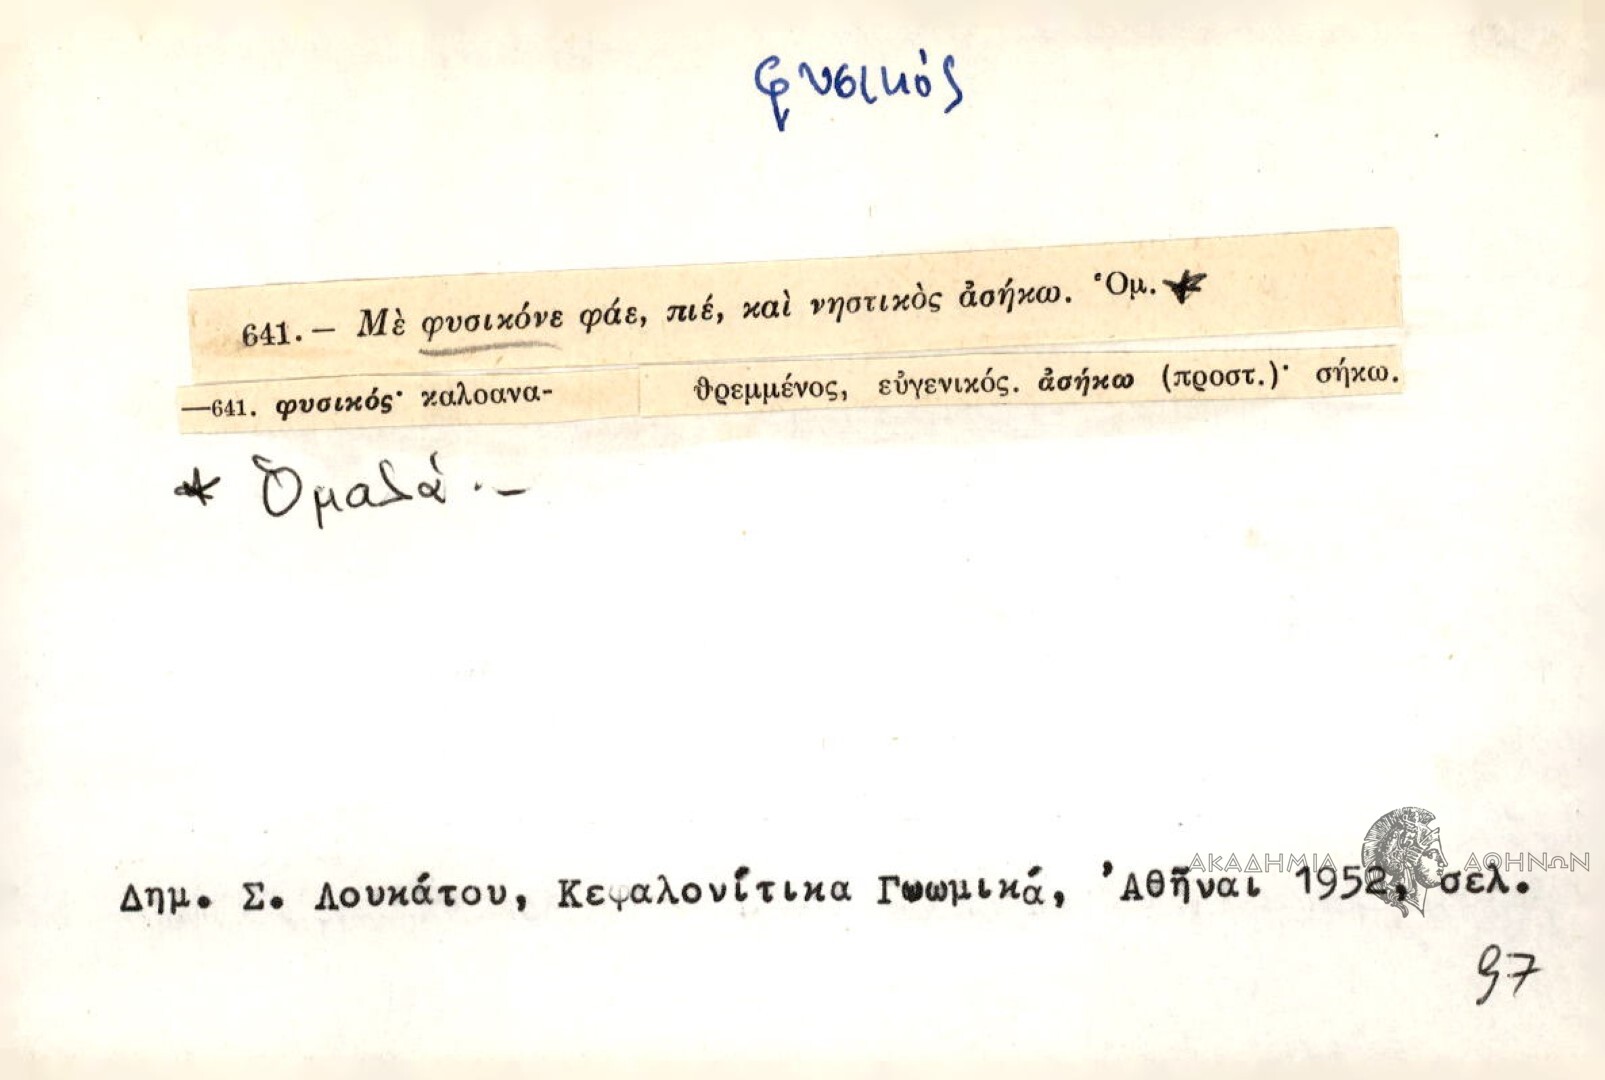 φυσικός
641.— Μὲ φυσικόνε φάε, πιέ, καὶ νηστικὸς ἀσήκω. Ὁμ. *
—641. φυσικός· καλοανα- θρεμμένος, εὐγενικός. ἀσήκω (προστ.)· σήκω.
* Ὁμαλά .—
ΑΚΑΔΗΜΙΑ ΑΘΗΝΩΝ
Δημ. Σ. Λουκάτου, Κεφαλονίτικα Γνωμικά, Ἀθῆναι 1952, σελ.
97